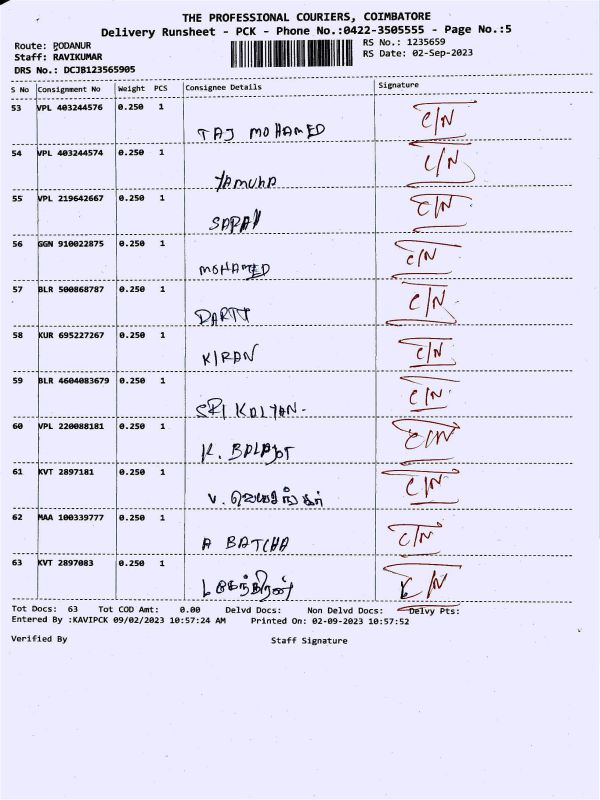 THE PROFESSIONAL COURIERS, COIMBATORE
Delivery Runsheet - PCK - Phone No.:0422-3505555 - Page No.:5
Route: PODANUR RS No.: 1235659
Staff: RAVIKUMAR RS Date: 02-Sep-2023
DRS No.: DCJB123565905
S No Consignment No Weight PCS Consignee Details Signature
53 VPL 403244576 0.250 1 C/N
TAJ MOHAMED
54 VPL 403244574 0.250 1 C/N
YAMUNA
55 VPL 219642667 0.250 1 C/N
56 GGN 910022875 0.250 1 C/N
MOHAMED
57 BLR 500868787 0.250 1 C/N
58 KUR 695227267 0.250 1 C/N
KIRAN
59 BLR 4604083679 0.250 1 C/N
SRI KALYAN.
60 VPL 220088181 0.250 1 C/N
K.
61 KVT 2897181 0.250 1 C/N
V.
62 MAA 100339777 0.250 1 C/N
A BATCHA
63 KVT 2897083 0.250 1 C/N
Tot Docs: 63 Tot COD Amt: 0.00 Delvd Docs: Non Delvd Docs: Delvy Pts:
Entered By :KAVIPCK 09/02/2023 10:57:24 AM Printed On: 02-09-2023 10:57:52
Verified By Staff Signature